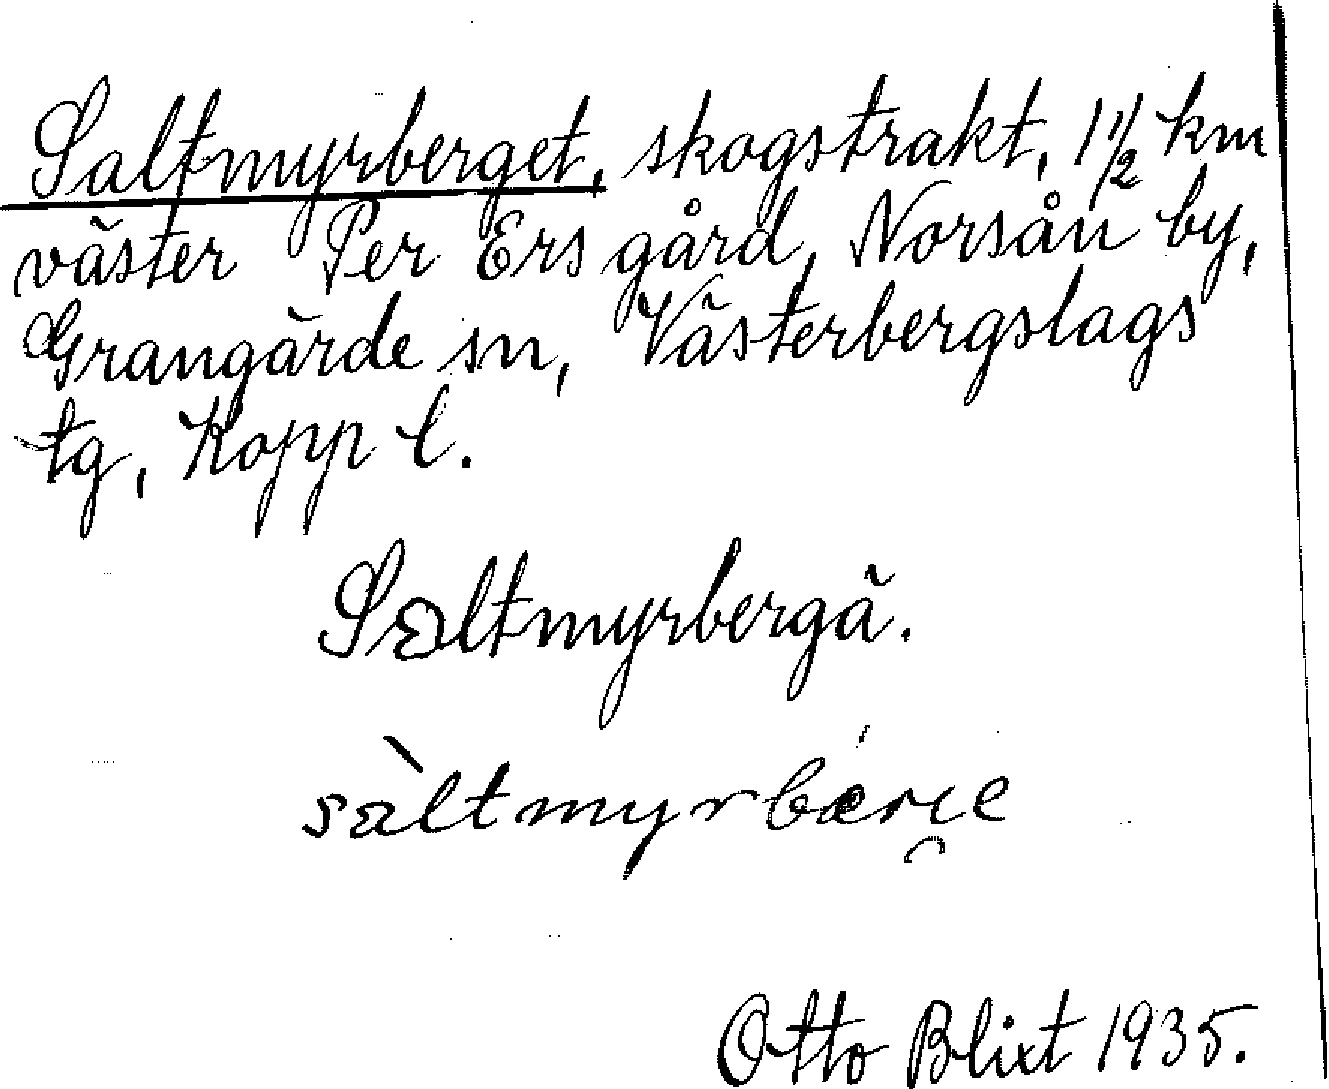 Saltmyrberget, skogstrakt, 1 1/2 km
väster Per Ers gård, Norsån by,
Grangärde sn, Västerbergslags
tg, Kopp l.
Saltmyrbergä.
Otto Blixt 1935.